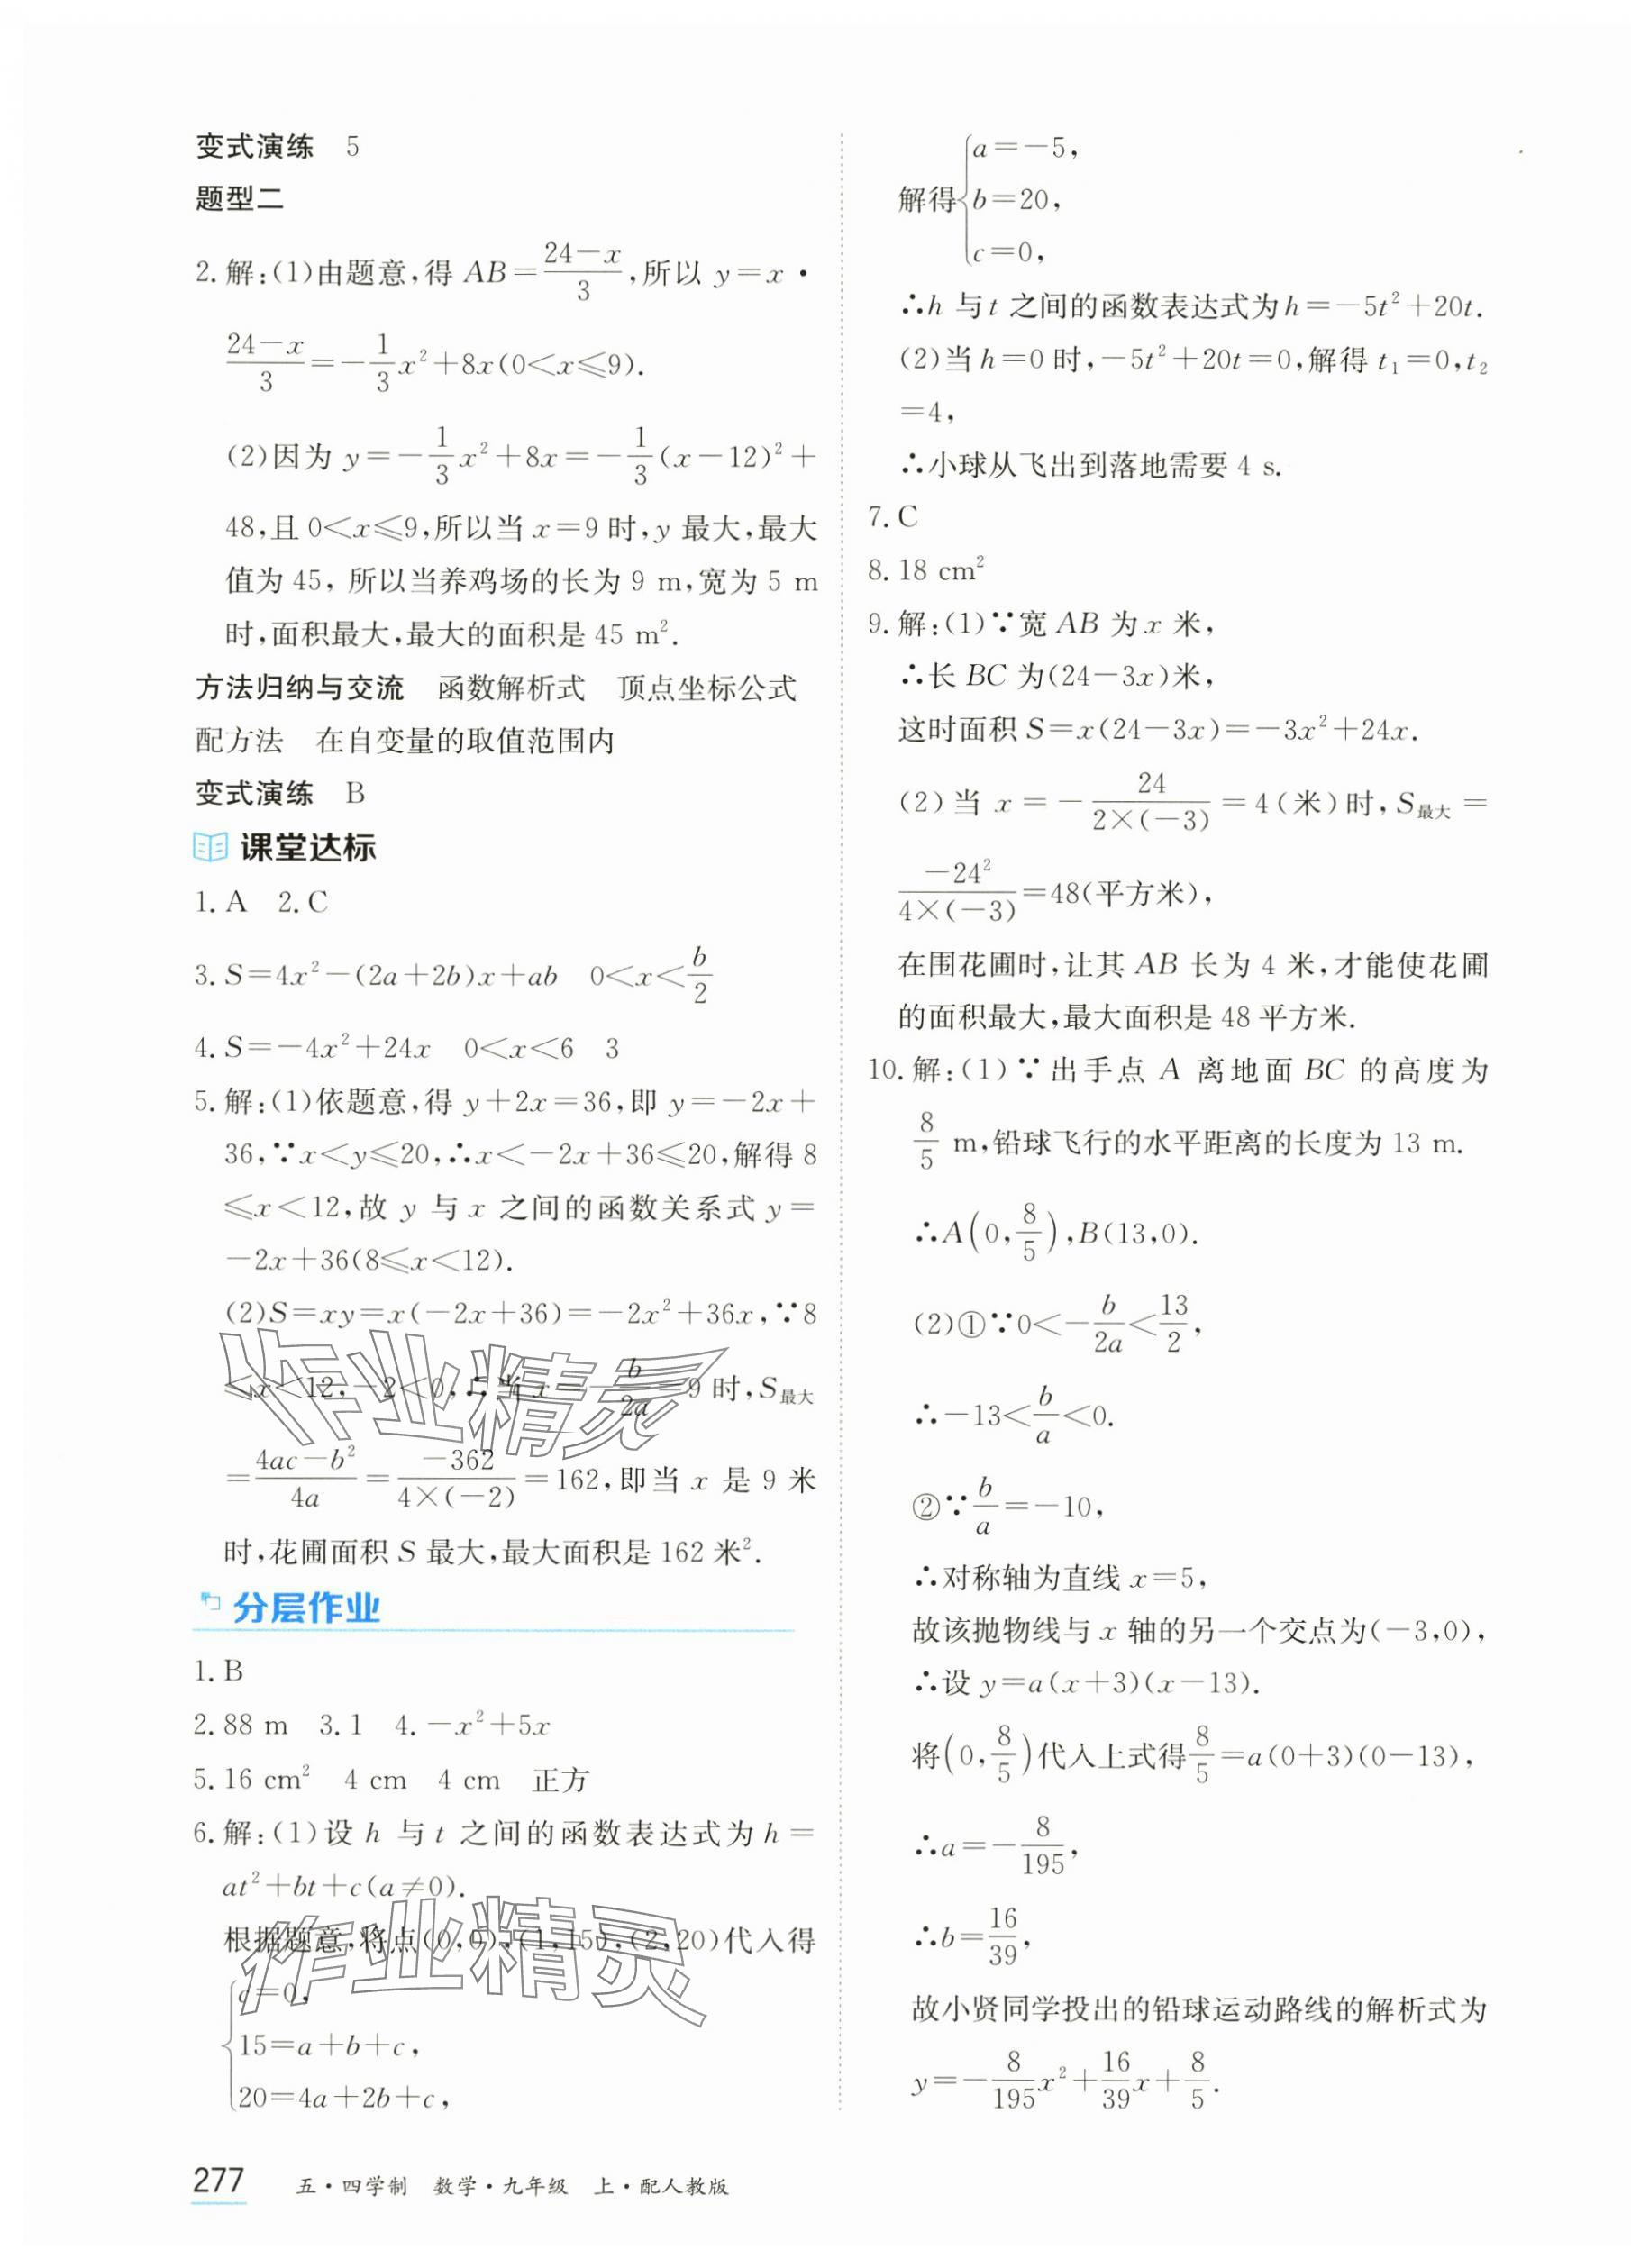 变式演练 5
题型二
2. 解:(1)由题意,得 AB=\frac{24-x}{3},所以 y=x·
\frac{24-x}{3}=-\frac{1}{3}x²+8x(0<x≤9).
(2)因为 y=-\frac{1}{3}x²+8x=-\frac{1}{3}(x-12)²+
48,且 0<x≤9,所以当 x=9 时,y 最大,最大
值为 45, 所以当养鸡场的长为 9 m,宽为 5 m
时,面积最大,最大的面积是 45 m².
方法归纳与交流 函数解析式 顶点坐标公式
配方法 在自变量的取值范围内
变式演练 B
课堂达标
1. A 2. C
3. S=4x²-(2a+2b)x+ab 0<x<\frac{b}{2}
4. S=-4x²+24x 0<x<6 3
5. 解:(1)依题意,得 y+2x=36,即 y=-2x+
36,∵x<y≤20,∴x<-2x+36≤20,解得 8
≤x<12,故 y 与 x 之间的函数关系式 y=
-2x+36(8≤x<12).
(2)S=xy=x(-2x+36)=-2x²+36x,∵8
≤x<12,-2<0,∴当 x=-\frac{b}{2a}=9 时,S最大
=\frac{4ac-b²}{4a}=\frac{-362}{4×(-2)}=162,即当 x 是 9 米
时,花圃面积 S 最大,最大面积是 162 米².
分层作业
1. B
2. 88 m 3. 1 4. -x²+5x
5. 16 cm² 4 cm 4 cm 正方
6. 解:(1)设 h 与 t 之间的函数表达式为 h=
at²+bt+c(a≠0).
根据题意,将点(0,0),(1,15),(2,20)代入得
c=0,
15=a+b+c,
20=4a+2b+c,
a=-5,
解得 b=20,
c=0,
∴h 与 t 之间的函数表达式为 h=-5t²+20t.
(2)当 h=0 时,-5t²+20t=0,解得 t₁=0,t₂
=4,
∴小球从飞出到落地需要 4 s.
7. C
8. 18 cm²
9. 解:(1)∵宽 AB 为 x 米,
∴长 BC 为(24-3x)米,
这时面积 S=x(24-3x)=-3x²+24x.
(2)当 x=-\frac{24}{2×(-3)}=4(米)时,S最大=
\frac{-24²}{4×(-3)}=48(平方米),
在围花圃时,让其 AB 长为 4 米,才能使花圃
的面积最大,最大面积是 48 平方米.
10. 解:(1)∵出手点 A 离地面 BC 的高度为
\frac{8}{5} m,铅球飞行的水平距离的长度为 13 m.
∴A(0,\frac{8}{5}),B(13,0).
(2)①∵0<-\frac{b}{2a}<\frac{13}{2},
∴-13<\frac{b}{a}<0.
②∵\frac{b}{a}=-10,
∴对称轴为直线 x=5,
故该抛物线与 x 轴的另一个交点为(-3,0),
∴设 y=a(x+3)(x-13).
将(0,\frac{8}{5})代入上式得\frac{8}{5}=a(0+3)(0-13),
∴a=-\frac{8}{195},
∴b=\frac{16}{39},
故小贤同学投出的铅球运动路线的解析式为
y=-\frac{8}{195}x²+\frac{16}{39}x+\frac{8}{5}.
277 五·四学制 数学·九年级 上·配人教版
作业精灵
作业精灵